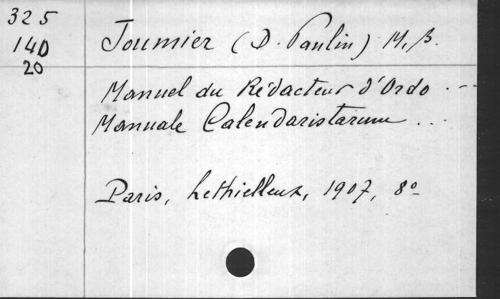 325
140
20
Joumier (D. Paulin) M. B.
Manuel du Rédacteur d'Ordo ...
Manuale Calendaristarum ...
Paris, Lethielleux, 1907, 8º